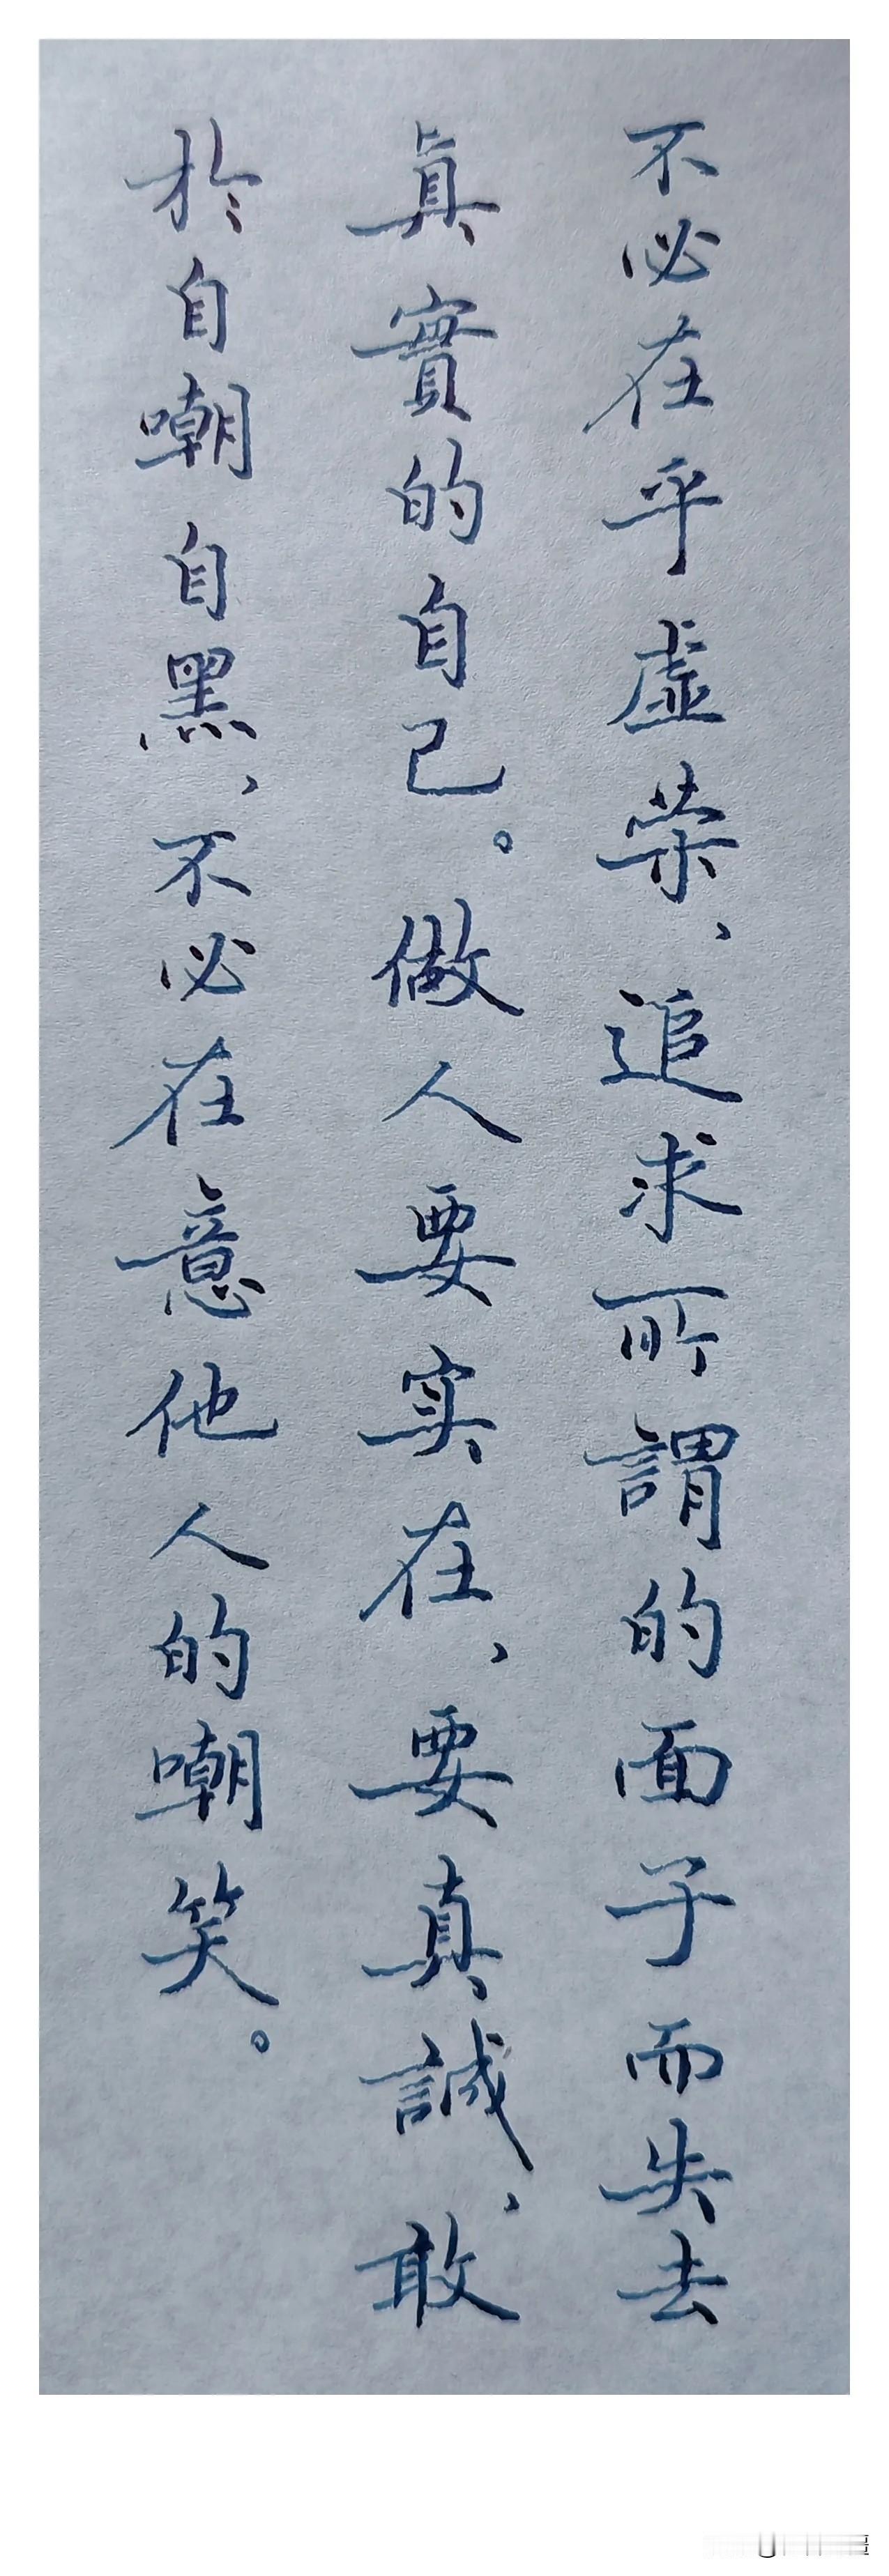 不必在乎虛荣、追求所謂的面子而失去
真實的自己。做人要实在、要真誠、敢
於自嘲自黑、不必在意他人的嘲笑。